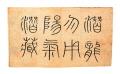 潛龍
勿用
陽氣
潛藏